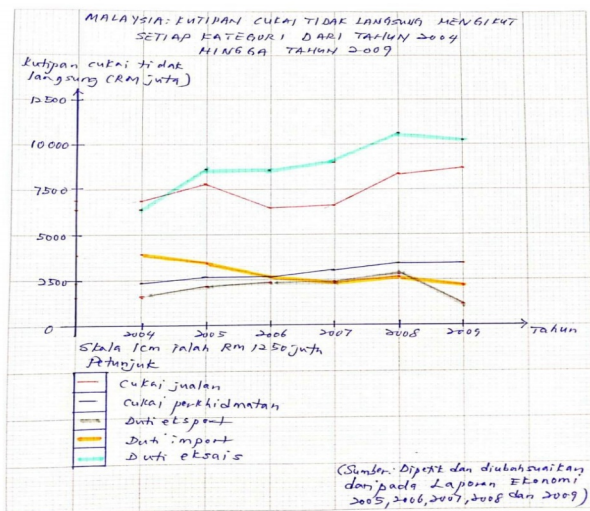 MALAYSIA: KUTIPAN CUKAI TIDAK LANGSUNG MENGIKUT
SETIAP KATEGORI DARI TAHUN 2004
HINGGA TAHUN 2009
Kutipan cukai tidak
langsung (RM juta)
12500
10000
7500
5000
2500
0
2004 2005 2006 2007 2008 2009
Tahun
Skala 1cm ialah RM 1250 juta
Petunjuk
Cukai jualan
Cukai perkhidmatan
Duti eksport
Duti import
Duti eksais
(Sumber: Dipetik dan diubahsuaikan
daripada Laporan Ekonomi
2005, 2006, 2007, 2008 dan 2009)